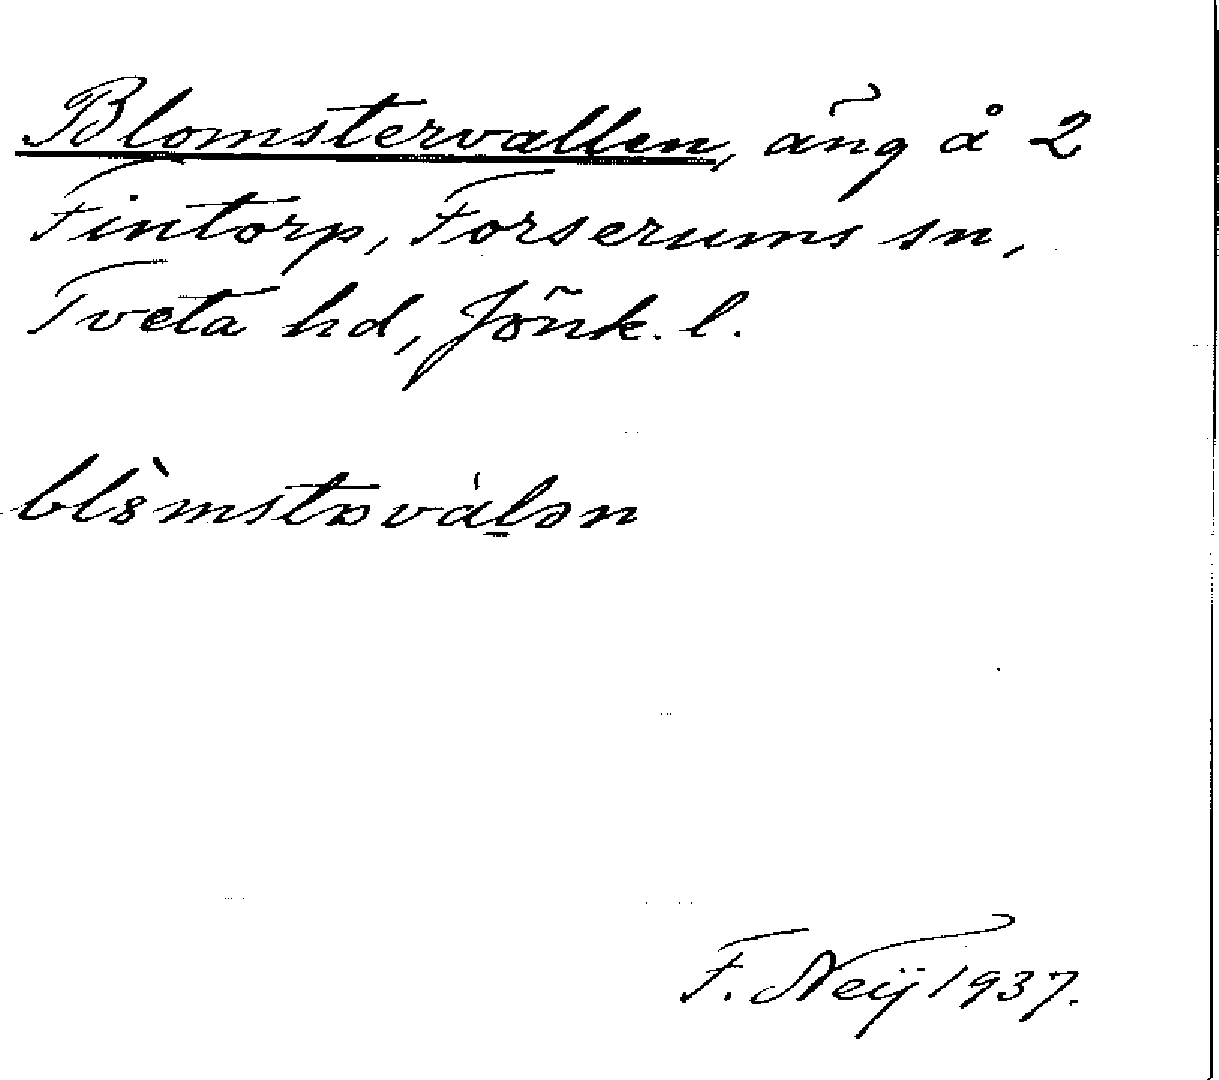 Blomstervallen, äng å 2
Fintorp, Forserums sn,
Tveta hd, Jönk. l.
F. Neij 1937.